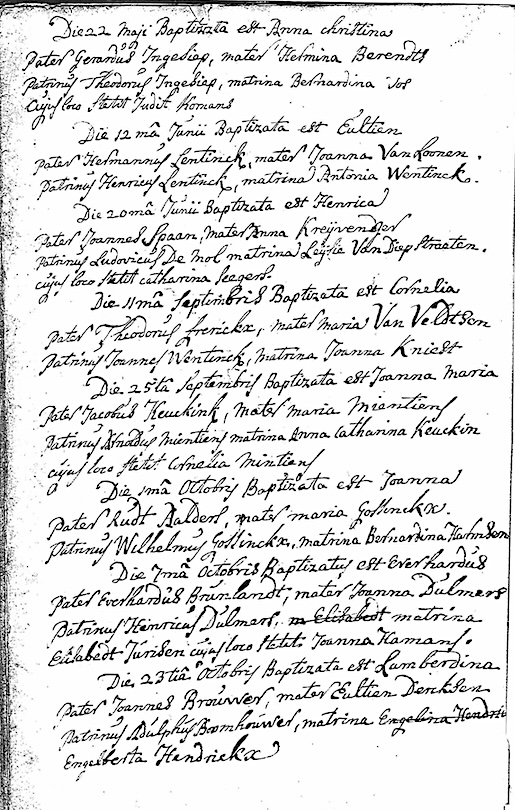 Die 22 Maji Baptizata est Anna christina
Pater Gerardus Ingesiep, mater Helmina Berendts
Patrinus Theodorus Ingesiep, matrina Bernardina Jos
Cujus loco stetit Judit Komans
Die 12 mâ Junii Baptizata est Eultien
pater Hermannus Lentinck, mater Joanna Van Loonen.
patrinus Henricus Lentinck, matrina Antonia Wentinck.
Die 20 mâ Junii Baptizata est Henrica
Pater Joannes Spaan, Mater Anna Kreijvenger
Patrinus Ludovicus De Mol matrina Leijsie Van Diepstraeten.
cujus loco stetit catharina Seegers.
Die 11 mâ Septembris Baptizata est Cornelia
pater Theodorus frerickx, mater maria Van Veldtsen
Patrinus Joannes Wentinck, matrina Joanna Kniest
Die 25 tâ Septembris Baptizata est Joanna Maria
Pater Jacobus Keuckink, mater maria Mientiens
Patrinus Arnoldus mientiens matrina Anna Catharina Keuckin
cujus loco stetit Cornelia Mintiens
Die 1 mâ Octobris Baptizata est Joanna
Pater Rudt Aalders, mater maria Gossinckx.
Patrinus Wilhelmus Gossinckx, matrina Bernardina Harmsen
Die 7 mâ Octobris Baptizatus est Everhardus
Pater Everhardus Brunlandt, mater Joanna Dulmers
Patrinus Heinricus Dulmers, m Elisabedt matrina
Elisabedt Jurisen cujus loco stetit Joanna Hamans.
Die 23 tiâ Octobris Baptizata est Lamberdina
Pater Joannes Brouwer, mater Eultien Dericksen
Patrinus Adulphus Boomhouwer, matrina Engelina Hendri
Engelberta Hendrickx